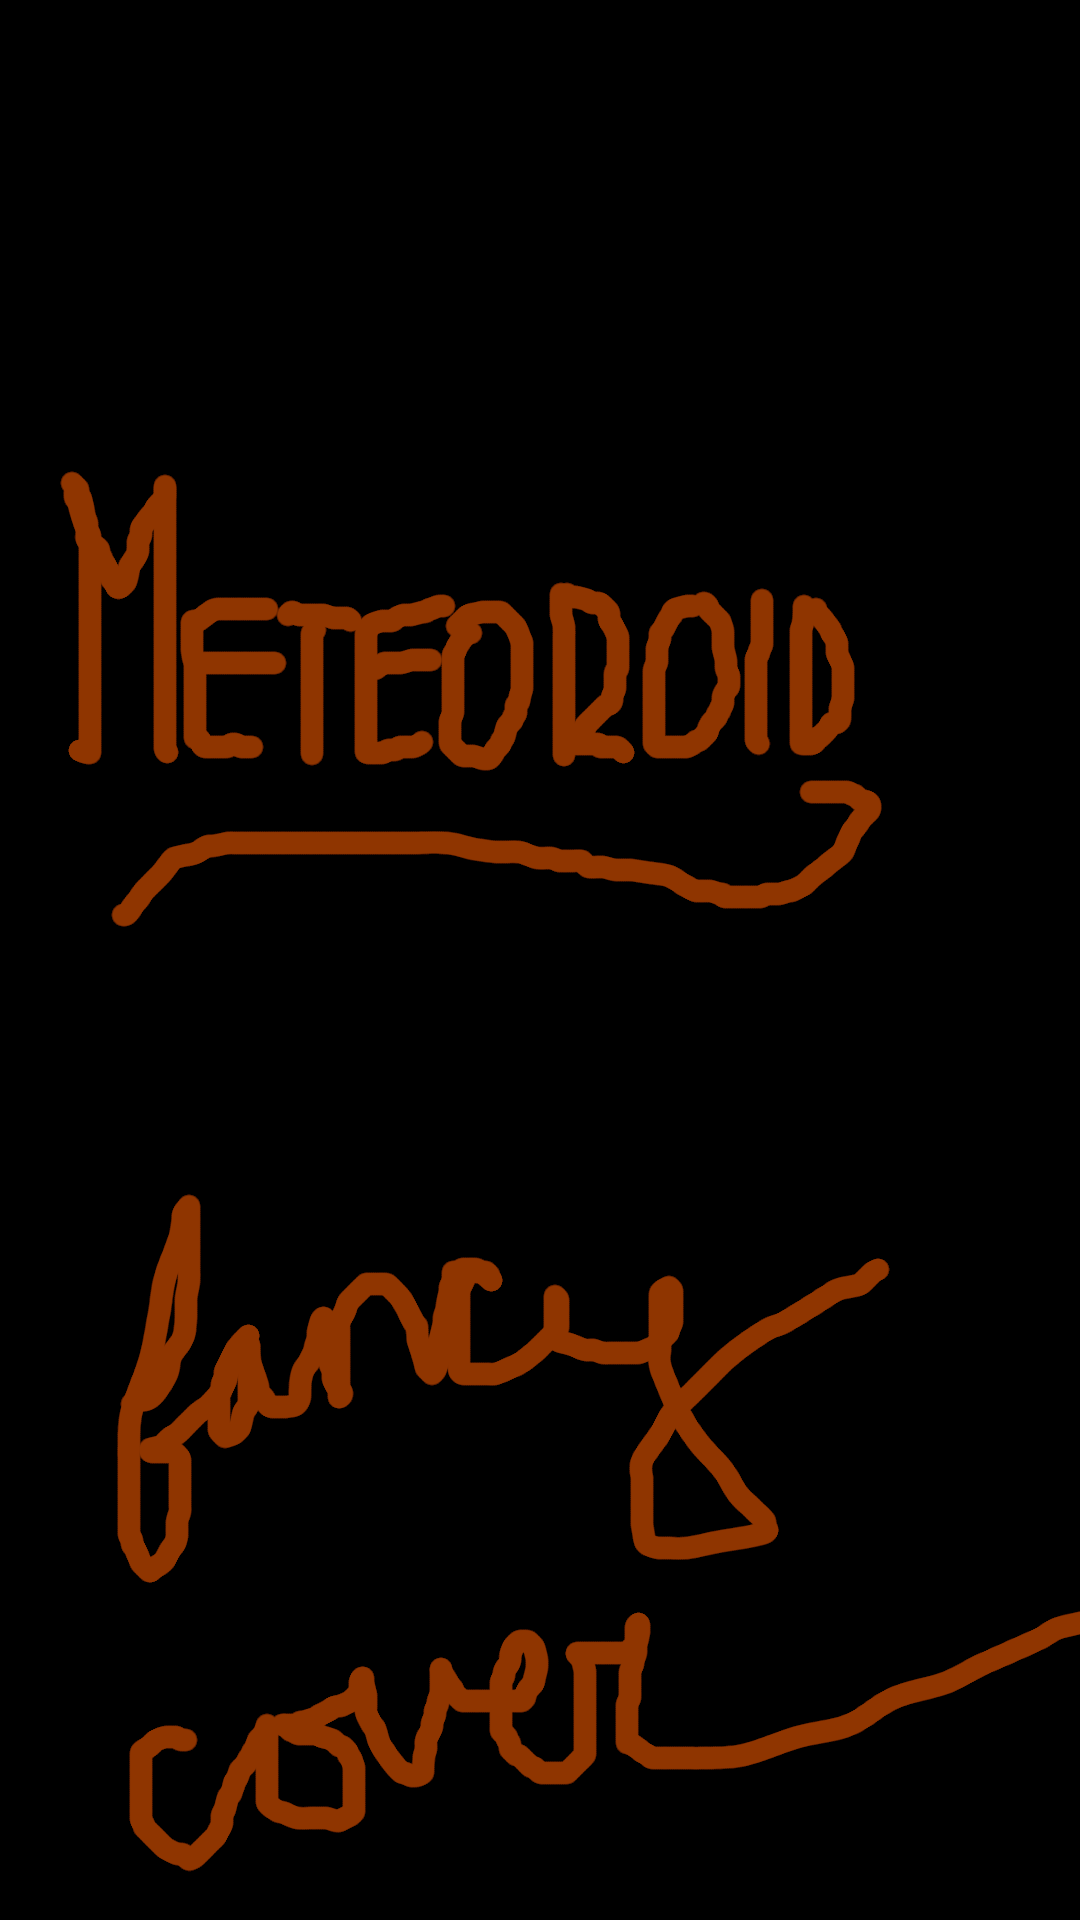 METEOROID
fancy
cover